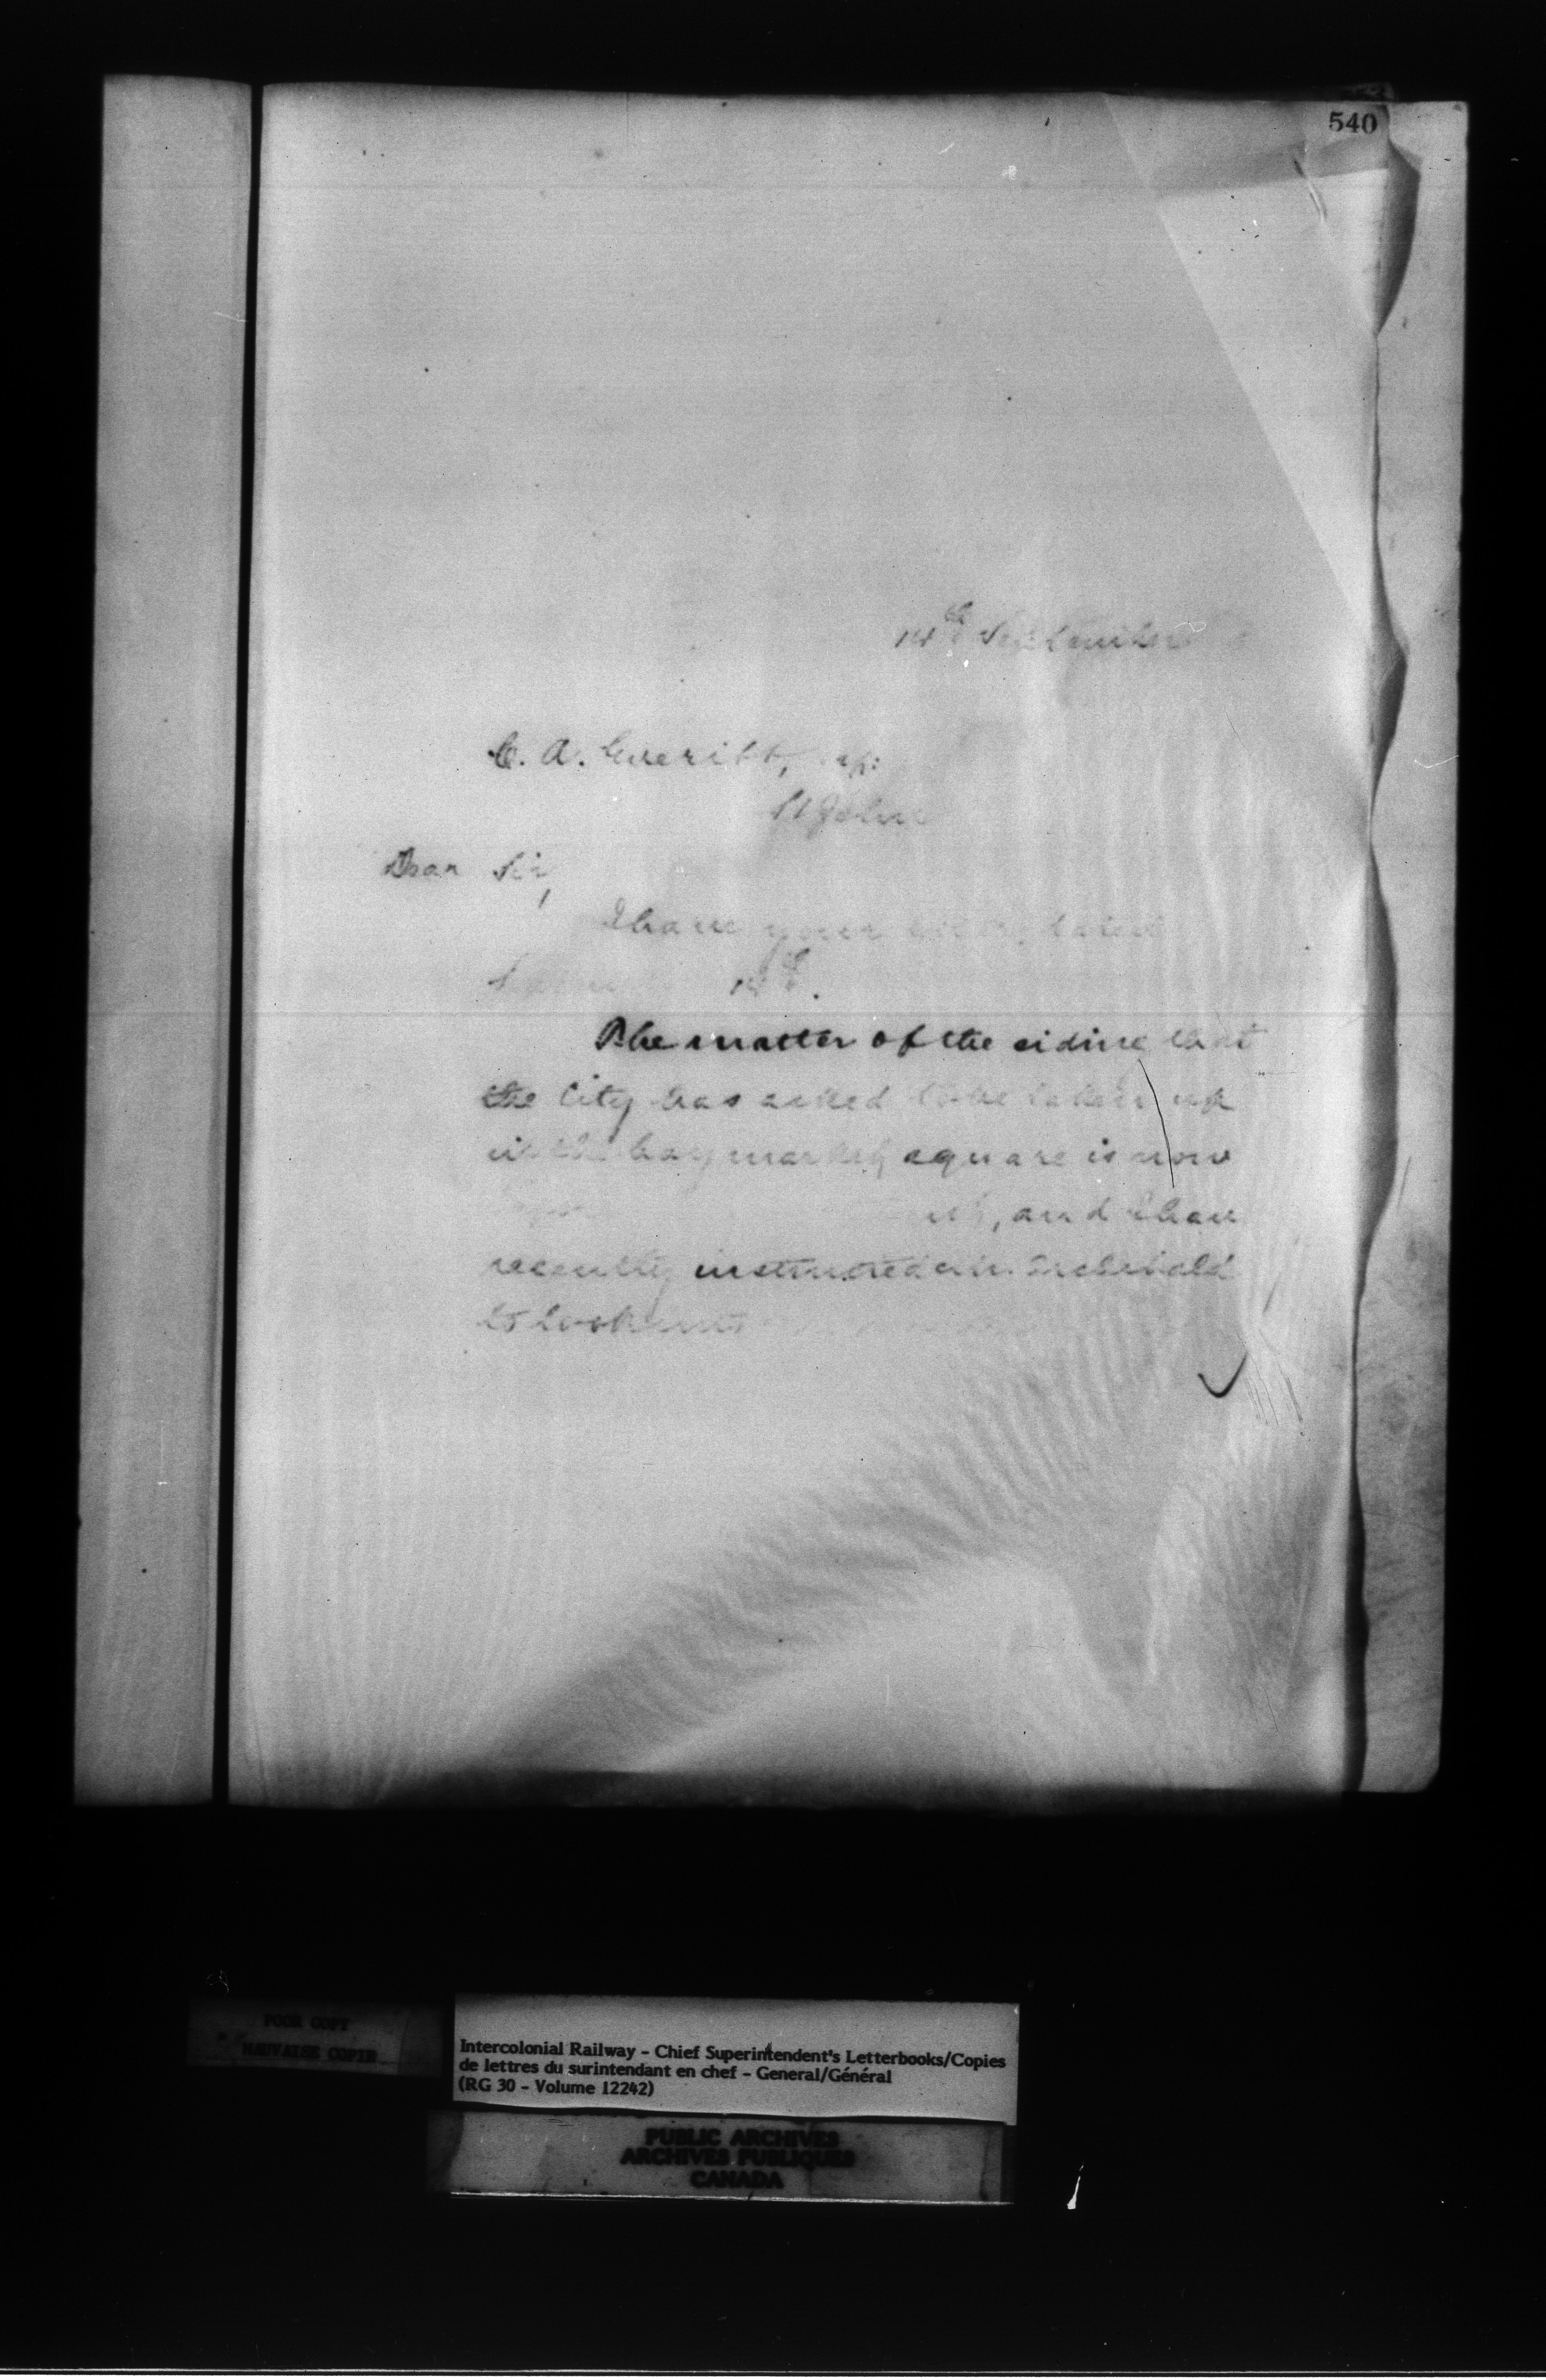 540
14th September
C. A. Everitt, Esq:
St John
Dear Sir,
I have your letter dated
14th.
The matter of the siding that
the City has asked to be taken up
in the hay market square is now
, and I have
recently instructed Mr. Archibald
to look into
POOR COPY
MAUVAISE COPIE
Intercolonial Railway - Chief Superintendent's Letterbooks/Copies
de lettres du surintendant en chef - General/Général
(RG 30 - Volume 12242)
PUBLIC ARCHIVES
ARCHIVES PUBLIQUES
CANADA